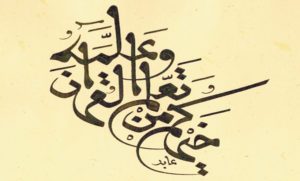 خيركم من
تعلم القرآن
وعلمه
عابد